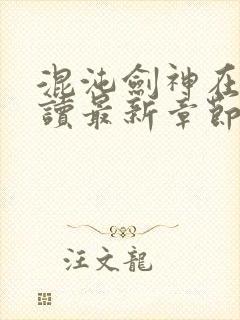 混沌劍神在
讀最新章節
汪文龍